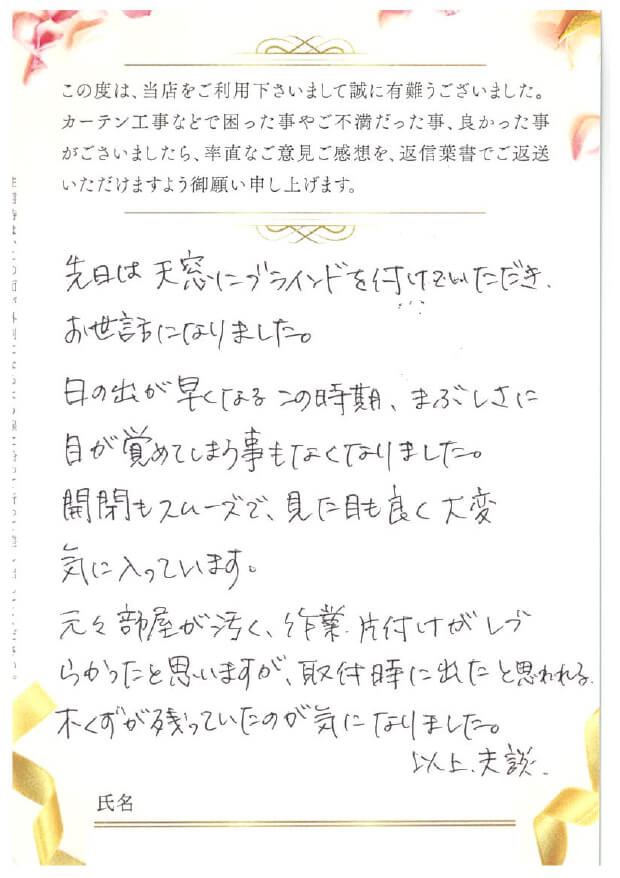 この度は、当店をご利用下さいまして誠に有難うございました。
カーテン工事などで困った事やご不満だった事、良かった事
がございましたら、率直なご意見ご感想を、返信葉書でご返送
いただけますよう御願い申し上げます。
先日は天窓にブラインドを付けていただき、
お世話になりました。
日の出が早くなるこの時期、まぶしさに
目が覚めてしまう事もなくなりました。
開閉もスムーズで、見た目も良く大変
気に入っています。
元々部屋が汚く、作業、片付けがしづ
らかったと思いますが、取付時に出たと思われる、
木くずが残っていたのが気になりました。
以上、夫談、
氏名